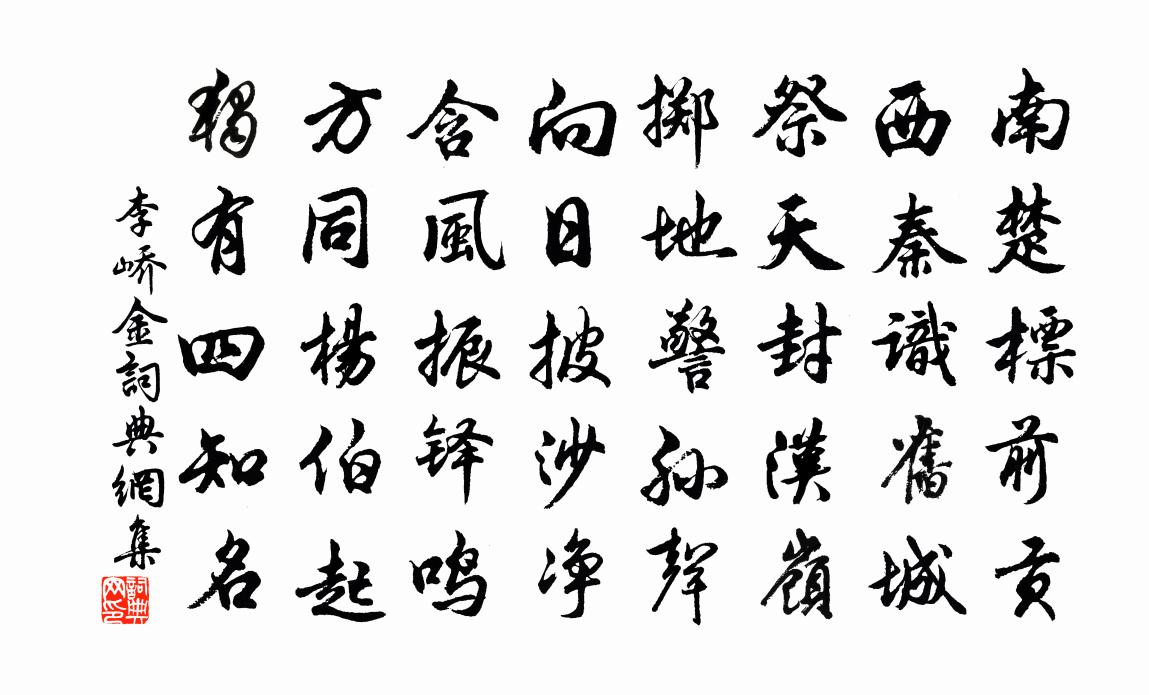 南楚標前貢
西秦識舊城
祭天封漢嶺
擲地警孫聲
向日披沙净
含風振铎鸣
方同楊伯起
獨有四知名
李峤金詞典網集
詞典网印